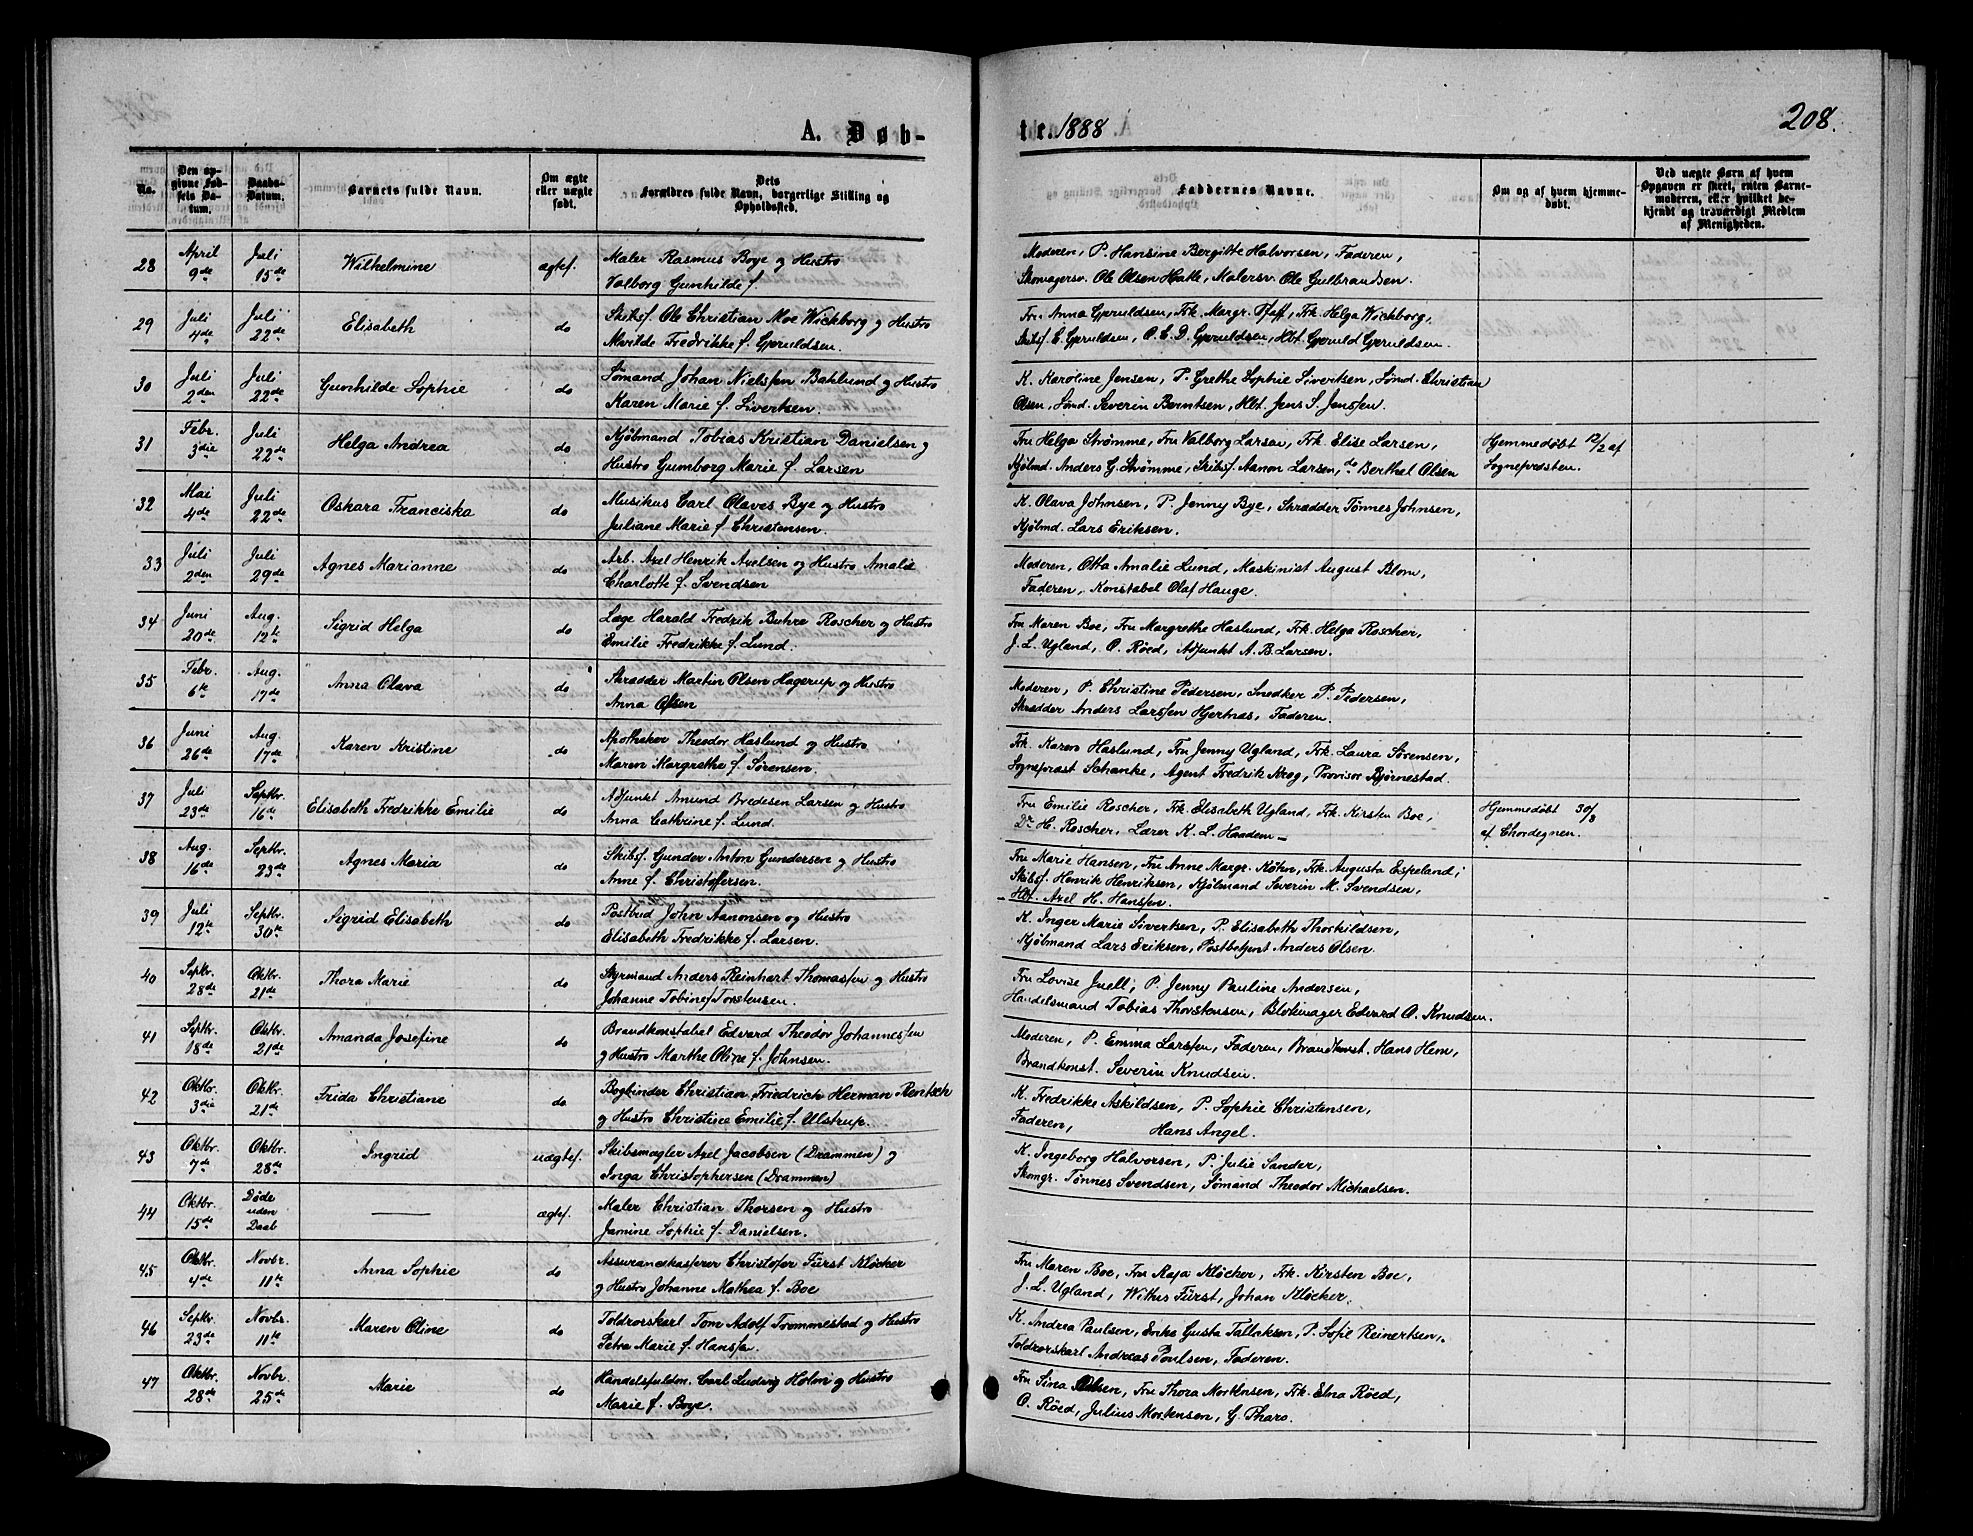 A. Døb-
te. 1888
208.
No.
Den op-
givne Fød-
sels Da-
tum.
Daabs-
Datum.
Barnets fulde Navn.
Om ægte
eller uægte
født.
Dets
Forældres fulde Navn, borgerlige Stilling og
Opholdssted.
Faddernes Navne.
Om og af hvem hjemme-
døbt.
Ved uægte Børn af hvem
Opgaven er skeet, enten Barne-
moderen, eller hvilket be-
kjendt og troværdigt Medlem
af Menigheden.
28 April 9de Juli 15de Wilhelmine ægtef. Maler Rasmus Boye og Hustro
Valborg Gunhilde f.
Moderen, P. Hansine Bergitte Halvorsen, Faderen,
Skomagersv. Ole Olsen Hatle, Malersv. Ole Gulbrandsen.
29 Juli 4de Juli 22de Elisabeth do Skibsf. Ole Christian Moe Wickborg og Hustro
Marilde Fredrikke f. Gjeruldsen.
Fru Anna Gjeruldsen, Frk. Margr. Pfaff, Frk. Helga Wickborg,
Skibsf. E. Gjeruldsen, O. E. D. Gjeruldsen, Hbt. Gjeruld Gjeruldsen.
30 Juli 2den Juli 22de Gunhilde Sophie do Sømand Johan Nielssen Baklund og Hustro
Karen Marie f. Sivertsen.
K. Karoline Jensen, P. Grethe Sophie Sivertsen, Sømd. Christian
Olsen, Sømd. Severin Berntsen, Hbt. Jens S. Jenssen.
31 Febr. 3die Juli 22de Helga Andrea do Kjøbmand Tobias Kristian Danielsen og
Hustro Gumborg Marie f. Larsen
Fru Helga Strømme, Fru Valborg Larsen, Frk. Elise Larsen,
Kjøbmd. Anders G. Strømme, Skibsf. Aanon Larsen, do Berthel Olsen
Hjemmedøbt 12/2 af
Sognepresten.
32 Mai 4de Juli 22de Oskara Franciska do Musikus Carl Olaves Bye og Hustro
Juliane Marie f. Christensen.
K. Olava Johnsen, P. Jenny Bye, Skrædder Tønnes Johnsen,
Kjøbmd. Lars Eriksen.
33 Juli 2den Juli 29de Agnes Marianne do Arb. Axel Henrik Axelsen og Hustro Amalie
Charlotte f. Svendsen
Moderen, Otta Amalie Lund, Maskinist August Blom,
Faderen, Konstabel Olaf Hauge.
34 Juni 20de Aug. 12te Sigrid Helga do Læge Harald Fredrik Buhre Roscher og Hustro
Emilie Fredrikke f. Lund.
Fru Maren Boe, Fru Margrethe Haslund, Frk. Helga Roscher,
J. L. Ugland, O. Röed, Adjunkt A. B. Larsen.
35 Febr. 6te Aug. 17de Anna Olava do Skrædder Martin Olsen Hagerup og Hustro
Anna Olsen
Moderen, P. Christine Pedersen, Snedker P. Pedersen,
Skrædder Anders Larssen Hjertnæs, Faderen.
36 Juni 26de Aug. 17de Karen Kristine do Apotheker Theodor Haslund og Hustro
Maren Margrethe f. Sørensen.
Frk. Karen Haslund, Fru Jenny Ugland, Frk. Laura Sørensen,
Sognepræst Schanke, Agent Fredrik Krog, Provisor Bjørnestad.
37 Juli 23de Septbr. 16de Elisabeth Fredrikke Emilie do Adjunkt Amund Bredesen Larsen og Hustro
Anna Cathrine f. Lund.
Fru Emilie Roscher, Frk. Elisabeth Ugland, Frk. Kirsten Boe,
Dr H. Roscher, Lærer K. L. Haadem
Hjemmedøbt 30/8
af Chordegnen.
38 Aug. 16de Septbr. 23de Agnes Maria do Skibsf. Gunder Anton Gundersen og Hustro
Anne f. Christofersen.
Fru Marie Hansen, Fru Anne Margr. Köhn, Frk. Augusta Espeland,
Skibsf. Henrik Henriksen, Kjøbmand Severin M. Svendsen,
Hbt. Axel H. Hanssen.
39 Juli 12te Septbr. 30te Sigrid Elisabeth do Postbud John Aanonsen og Hustro
Elisabeth Fredrikke f. Larsen.
K. Inger Marie Sivertsen, P. Elisabeth Thorkildsen,
Kjøbmand Lars Eriksen, Postbetjent Anders Olsen.
40 Septbr. 28de Oktbr. 21de Thora Marie do Styrmand Anders Reinhart Thomassen og Hustro
Johanne Tobine f. Torstensen.
Fru Lovise Juell, P. Jenny Pauline Andersen,
Handelsmand Tobias Thorstensen, Blokmager Edvard O. Knudsen.
41 Septbr. 18de Oktbr. 21de Amanda Josefine do Brandkonstabel Edvard Theodor Johannessen
og Hustro Marthe Oline f. Johnsen.
Moderen, P. Emma Larssen, Faderen, Brandkonst. Hans Hem,
Brandkonst. Severin Knudsen.
42 Oktbr. 3die Oktbr. 21de Frida Christiane do Bogbinder Christian Friedrich Herman Rentsch
og Hustro Christine Emilie f. Ulstrup.
K. Fredrikke Askildsen, P. Sophie Christensen,
Faderen, Hans Angel.
43 Oktbr. 7de Oktbr. 28de Ingrid uægtef. Skibsmægler Axel Jacobsen (Drammen) og
Inga Christophersen (Drammen)
K. Ingeborg Halvorsen, P. Julie Sander,
Skomgr. Tønnes Svendsen, Sømand Theodor Michaelsen.
44 Oktbr. 15de Døde uden Daab — ægtef. Maler Christian Thorsen og Hustro
Jamine Sophie f. Danielsen.
45 Oktbr. 4de Novbr. 11te Anna Sophie do Assurancekasserer Christofer Fürst Kløcker
og Hustro Johanne Mathea f. Boe
Fru Maren Boe, Fru Kaja Kløcker, Frk. Kirsten Boe,
J. L. Ugland, Withus Fürst, Johan Kløcker.
46 Septbr. 23de Novbr. 11te Maren Oline do Toldrorskarl Tom Adolf Trommestad og Hustro
Petra Marie f. Hanssen.
K. Andrea Paulsen, Enke Gusta Tallaksen, P. Sofie Reinertsen,
Toldrorskarl Andreas Poulsen, Faderen.
47 Oktbr. 28de Novbr. 25de Marie do Handelsfuldm. Carl Ludvig Holm og Hustro
Marie f. Boye.
Fru Sina Olsen, Fru Thora Mortensen, Frk. Elna Röed,
O. Röed, Julius Mortensen, G. Tharo.